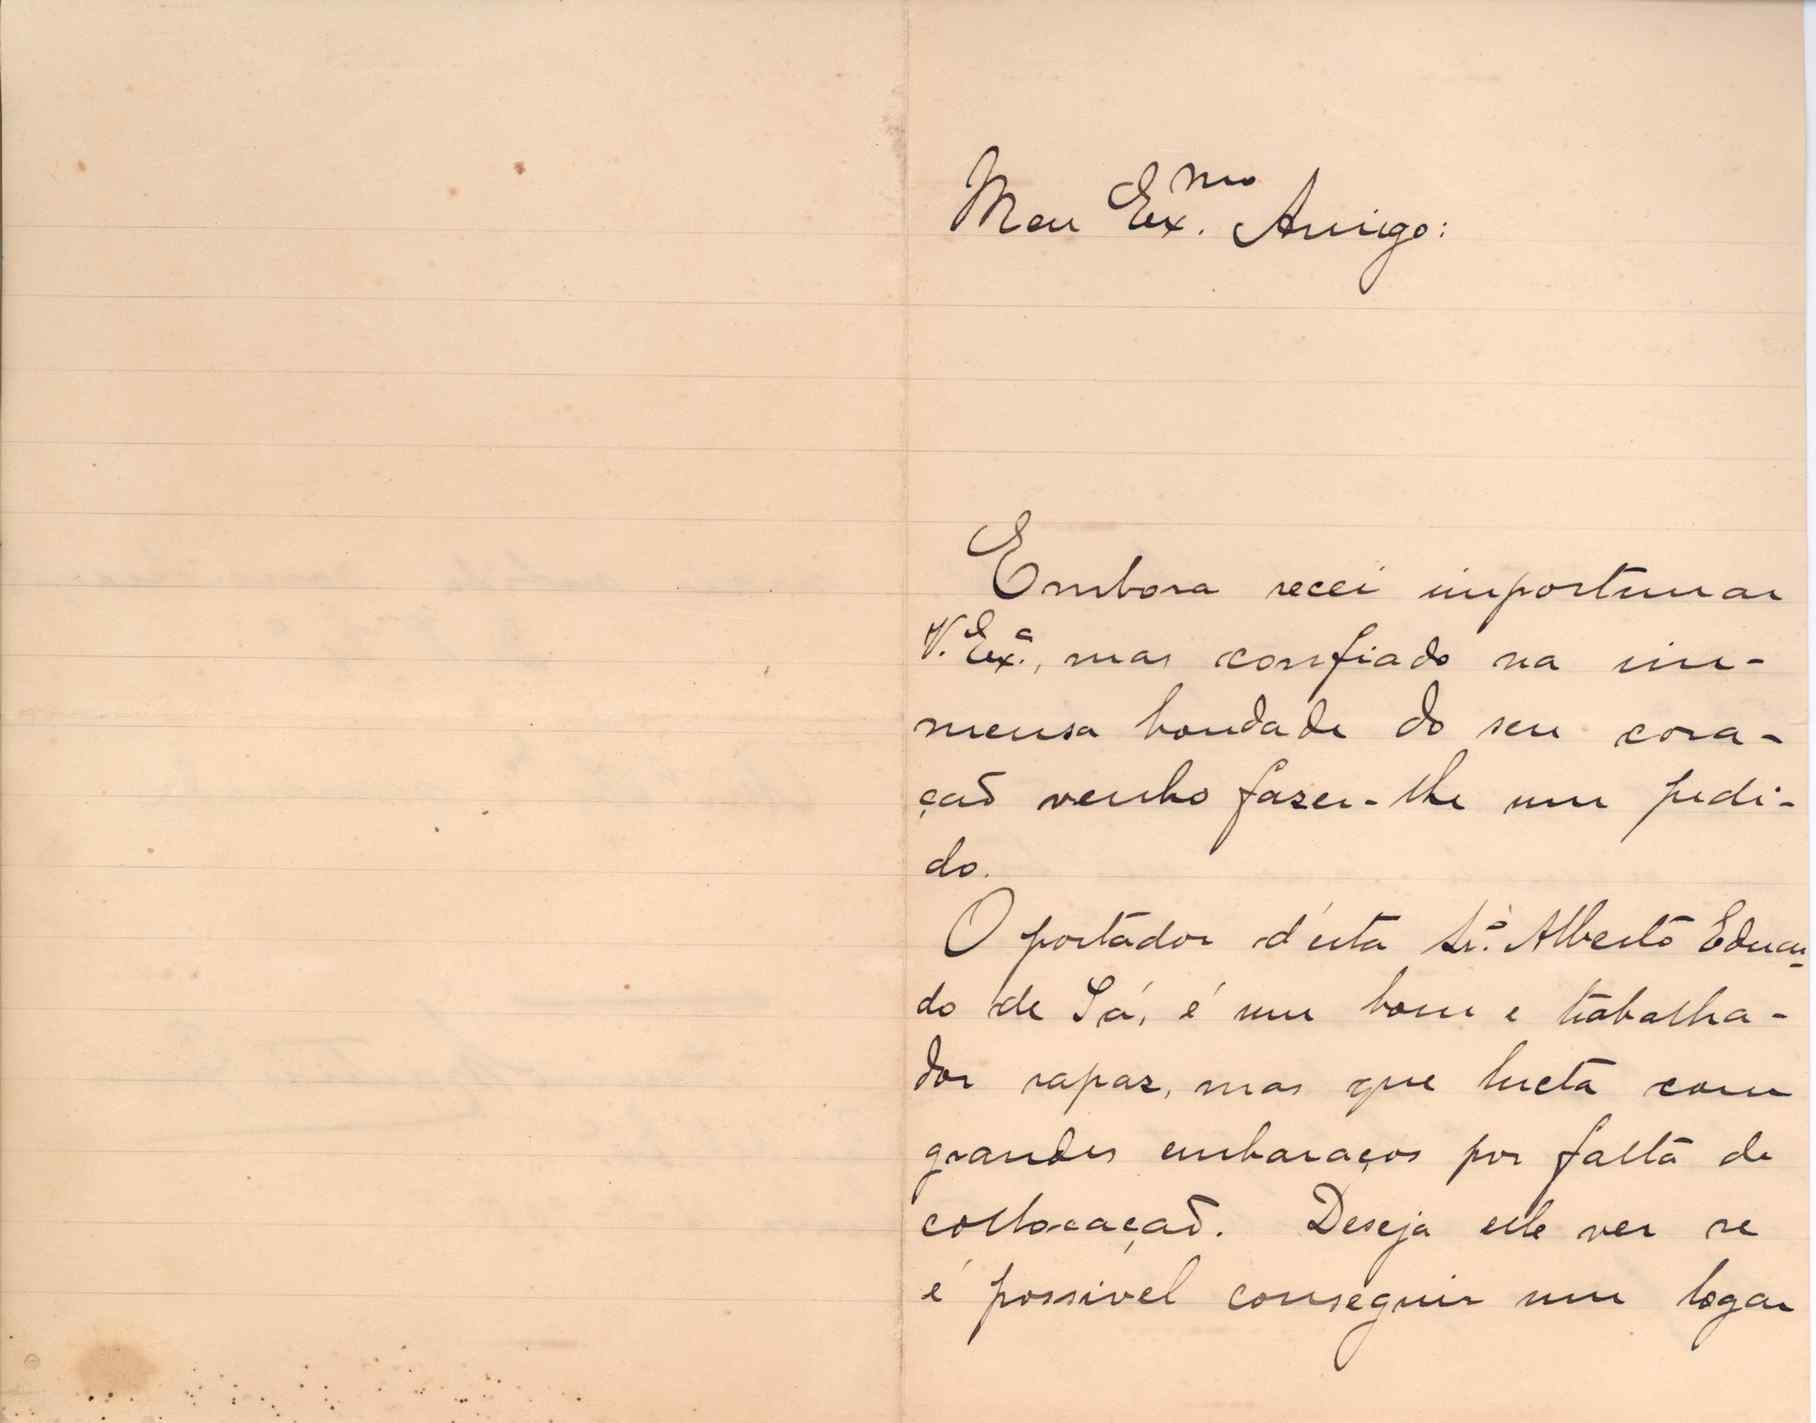 Meu Ex.mo Amigo:
Embora recei importunar
V. Ex.a, mas confiado na im-
mensa bondade do seu cora-
ção venho fazer-lhe um pedi-
do.
O portador d'esta Sr.º Alberto Eduar-
do de Sá, é um bom e trabalha-
dor rapaz, mas que lucta com
grandes embaraços por falta de
collocação. Deseja elle ver se
é possivel conseguir um logar